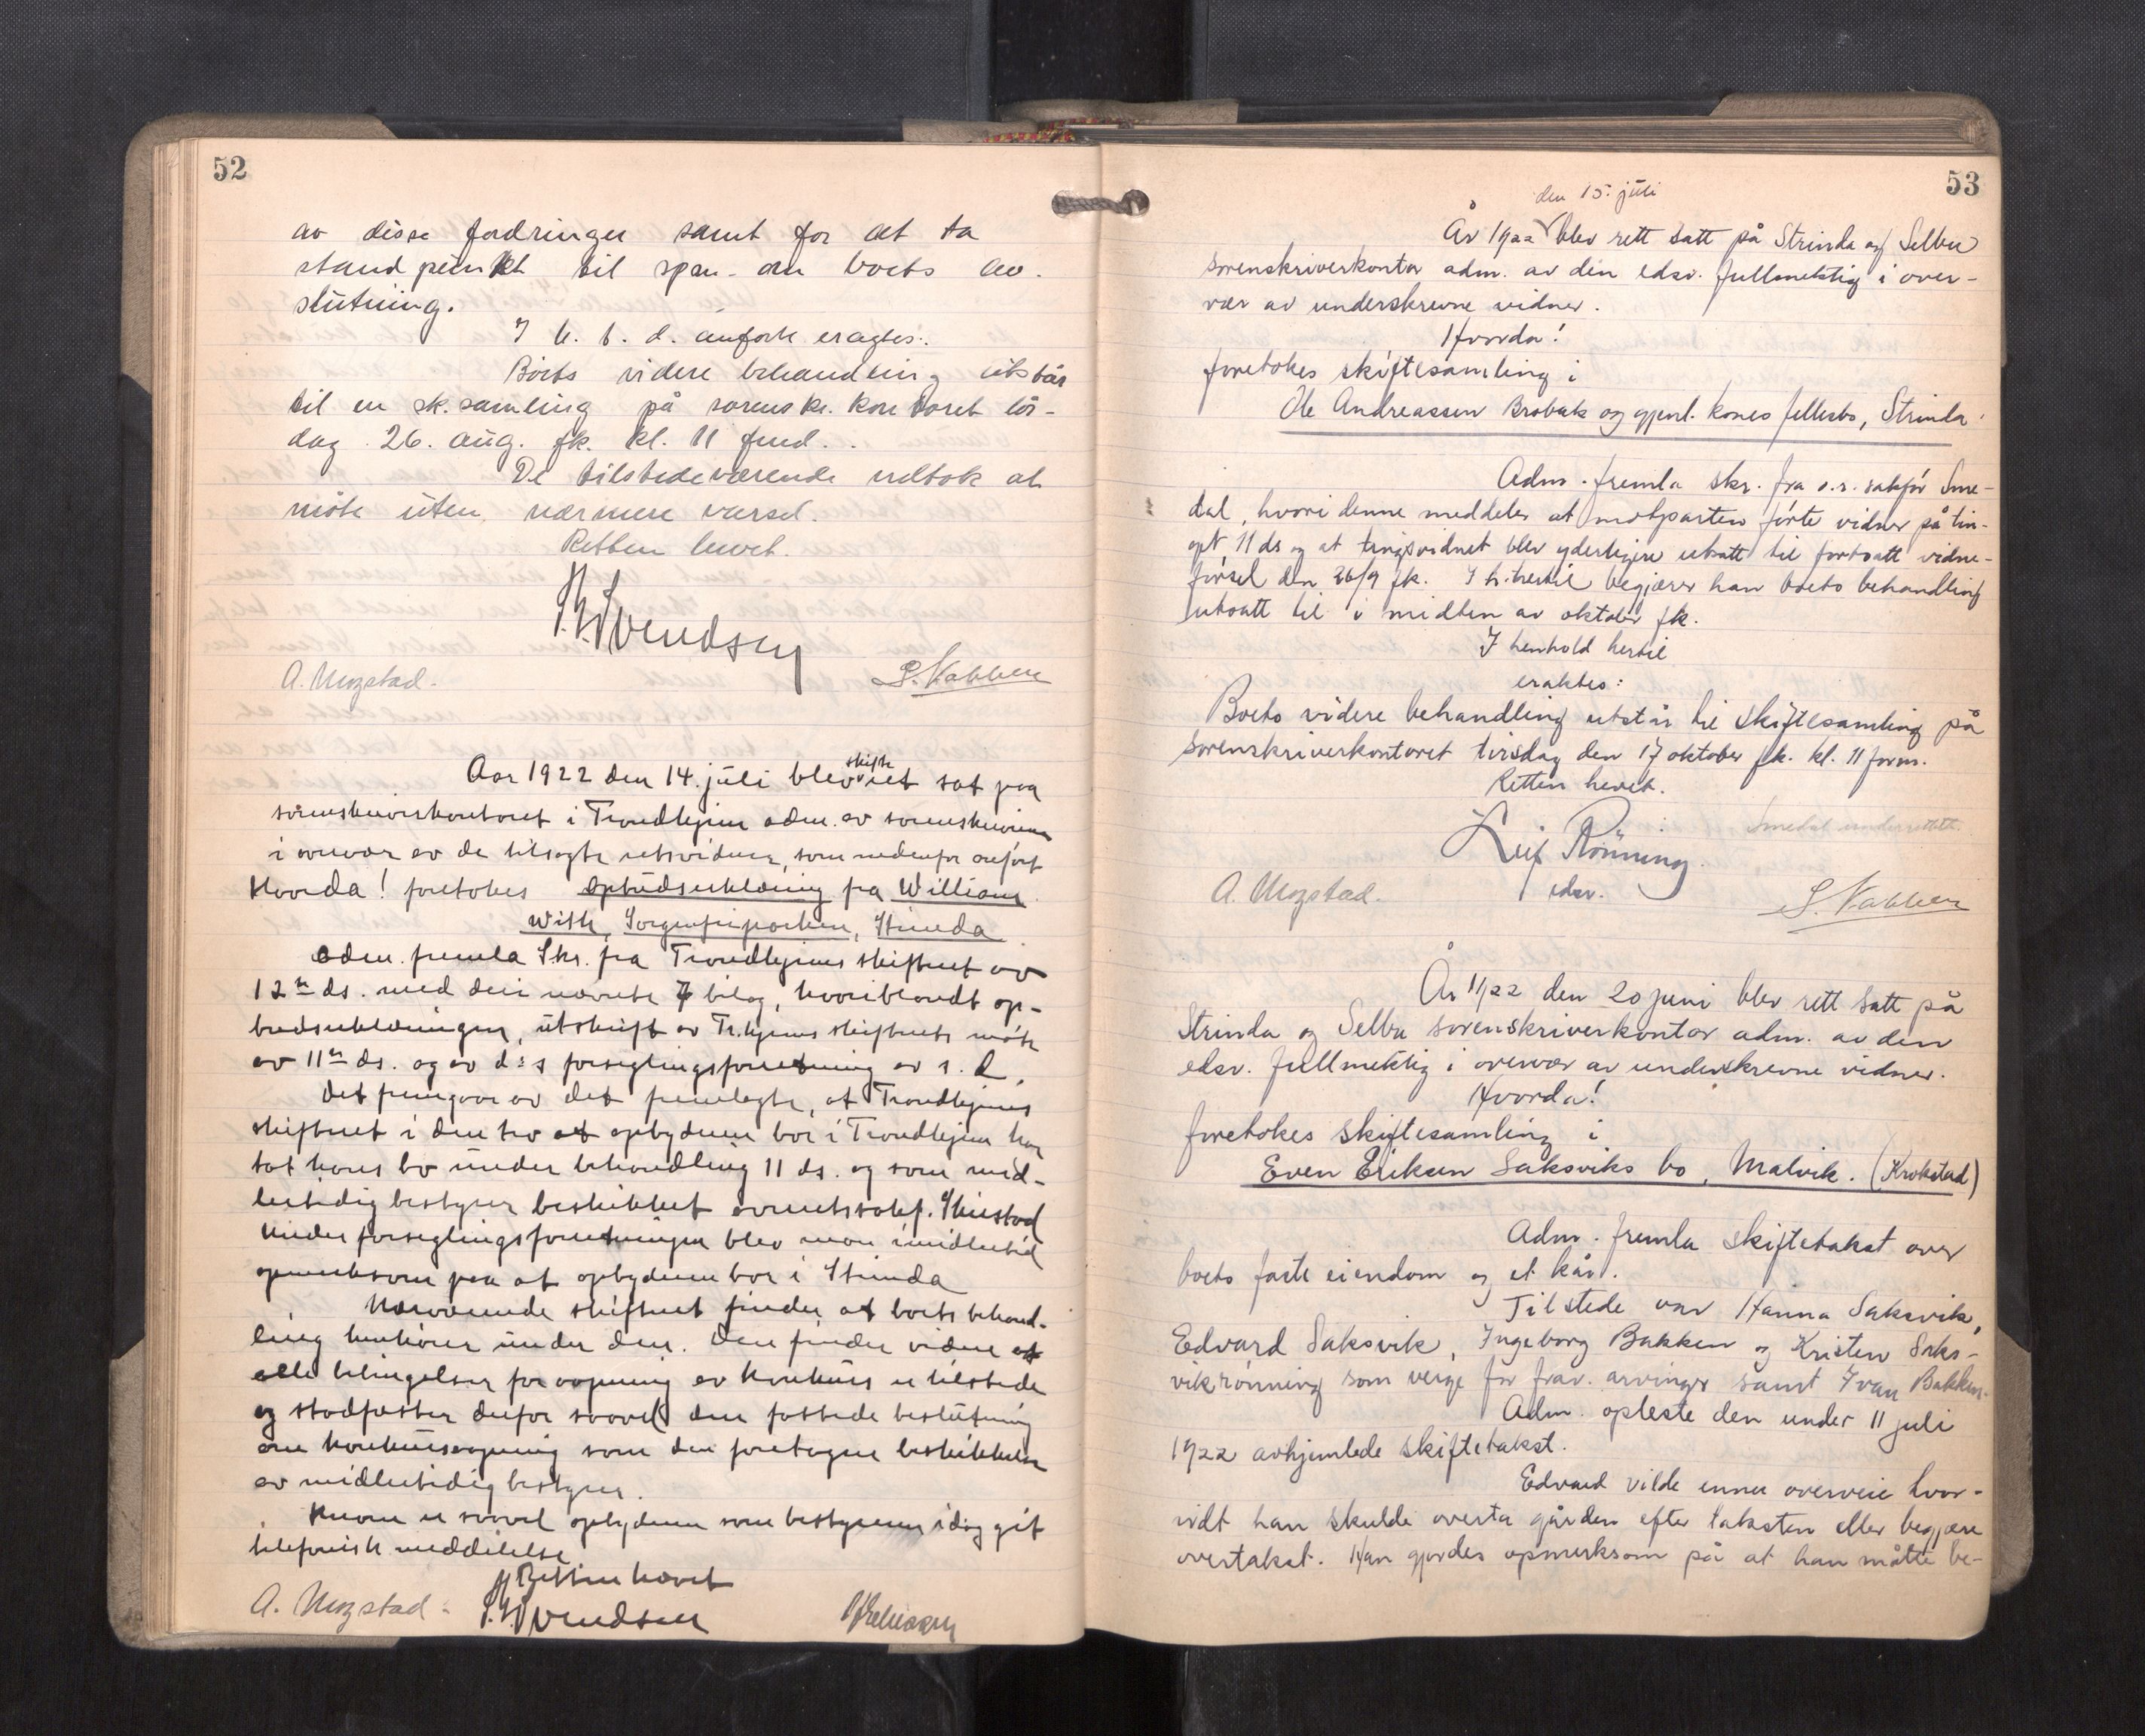 52
av disse fordringer samt for at ta
standpunkt til spm. om boets av-
slutning.
I h. t. d. anførte eragtes:
Boets videre behandling utstår
til en sk.samling på sorenskr.kontoret lör-
dag 26. aug. fk. kl. 11 fmd.
De tilstedeværende vedtok at
möte uten nærmere varsel.
Retten hevet.
Svendsen
A. Mogstad.
Aar 1922 den 14. juli blev skifteret sat paa
sorenskriverkontoret i Trondhjem adm. av sorenskriveren
i overvær av de tilsagte retsvidner, som nedenfor anfört
Hvorda! foretokes opbudserklæring fra William
With, Sorgenfriparken, Strinda
Adm. fremla skr. fra Trondhjems skifteret av
12te ds. med deri nævnte 7 bilag, hvoriblandt op-
budserklæringen, utskrift av Tr.hjems skifterets möte
av 11te ds. og av d: s forseglingsforretning av s. d.
Det fremgaar av det fremlagte, at Trondhjems
skifteret i den tro at opbyderen bor i Trondhjem har
tat hans bo under behandling 11 ds. og som mid-
lertidig bestyrer beskikket overretssakf.
Under forseglingsforretningen blev man imidlertid
opmerksom paa at opbyderen bor i Strinda
Nærværende skifteret finder at boets behand-
ling henhörer under den. Den finder videre at
alle betingelser for aapning av konkurs er tilstede
og stadfæster derfor saavel den fattede beslutning
om konkursaapning som den foretagne beskikkelse
av midlertidig bestyrer.
Herom er saavel opbyderen som bestyreren idag git
telefonisk meddelelse
Retten hævet
A. Mogstad. Svendsen
53
den 15. juli
År 1922 blev rett satt på Strinda og Selbu
sorenskriverkontor adm. av den edsv. fullmektig i over-
vær av underskrevne vidner.
Hvorda!
foretokes skiftesamling i
Ole Andreassen Brobak og gjenl. kones fellesbo, Strinda.
Adm. fremla skr. fra o.r. sakför Sme-
dal, hvori denne meddeler at motparten förte vidner på tin-
get 11 ds og at tingsvidnet blev yderligere utsatt til fortsatt vidne-
försel den 26/9 fk. I h. hertil begjærer han boets behandling
utsatt til i midten av oktober fk.
I henhold hertil
eraktes:
Boets videre behandling utstår til skiftesamling på
sorenskriverkontoret tirsdag den 17 oktober fk. kl. 11 form.
Retten hevet.
Smedal underrettet.
Leif Rönning
edsv.
A. Mogstad.
År 1922 den 20 juni blev rett satt på
Strinda og Selbu sorenskriverkontor adm. av den
edsv. fullmektig i overvær av underskrevne vidner.
Hvorda!
foretokes skiftesamling i
Even Eriksen Saksviks bo, Malvik. (Krokstad)
Adm. fremla skiftetakst over
boets faste eiendom og et kår.
Tilstede var Hanna Saksvik,
Edvard Saksvik, Ingeborg Bakken og Kristen Saks-
vikrönning som verge for frav. arvinger samt Ivan Bakken.
Adm. opleste den under 11 juli
1922 avhjemlede skiftetakst.
Edvard vilde ennu overveie hvor-
vidt han skulde overta gården efter taksten eller begjære
overtakst. Han gjordes opmerksom på at han måtte be-